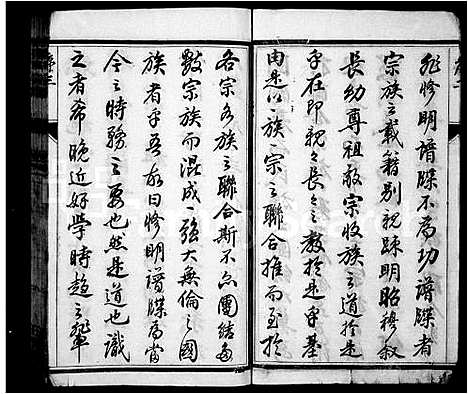 非修明譜牒不爲功譜牒者
宗族之載籍別親疎明昭穆叙
長幼尊祖敬宗收族之道於是
乎在即親之長之之教於是乎基
由是以一族一宗之聯合推而至於
各宗各族之聯合斯不亦團結多
數宗族而混成一強大無倫之國
族者乎吾故曰修明譜牒爲當
今之時務之要也然是道也識
之者希晩近好學時趨之輩
序三